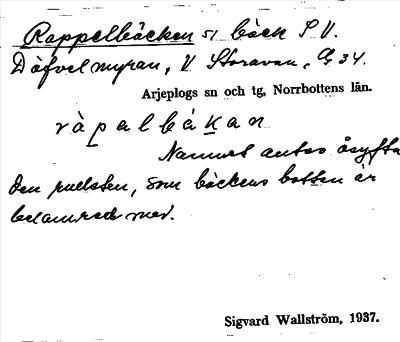 Rappelbäcken sl bäck S.V.
Döfvelmyran, V. Storavan, 34.
Arjeplogs sn och tg, Norrbottens län.
ràpalbäkan
Namnet antas åsyfta
den rullsten, som bäckens botten är
belamrad med.
Sigvard Wallström, 1937.